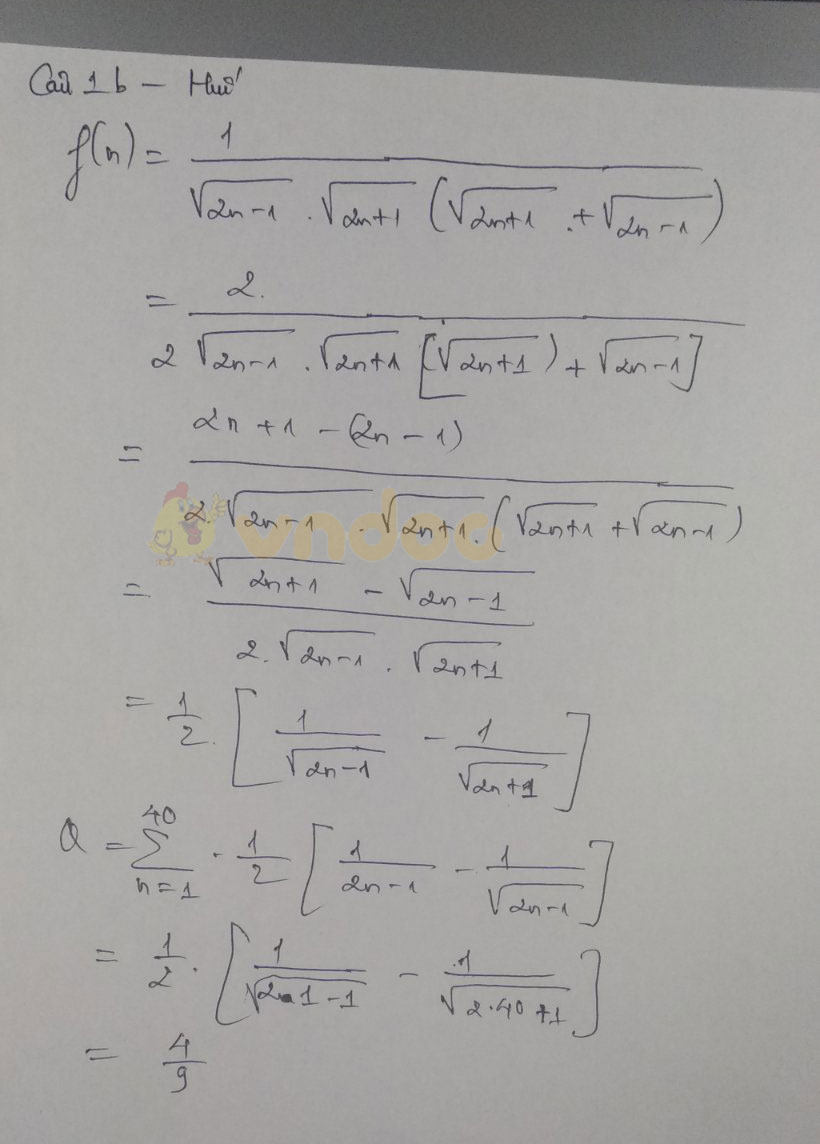 Câu 1b – Huế
f(n) = 1 / (√(2n-1) . √(2n+1) (√(2n+1) + √(2n-1)))
= 2 / (2 √(2n-1) . √(2n+1) [√(2n+1)) + √(2n-1)])
= (2n+1 - (2n-1)) / (2.√(2n-1) . √(2n+1) . (√(2n+1) + √(2n-1)))
vndoc
= (√(2n+1) - √(2n-1)) / (2.√(2n-1) . √(2n+1))
= 1/2 . [1/√(2n-1) - 1/√(2n+1)]
Q = ∑_{n=1}^{40} . 1/2 [1/(2n-1) - 1/√(2n-1)]
= 1/2 . [1/√(2.1-1) - 1/√(2.40+1)]
= 4/9